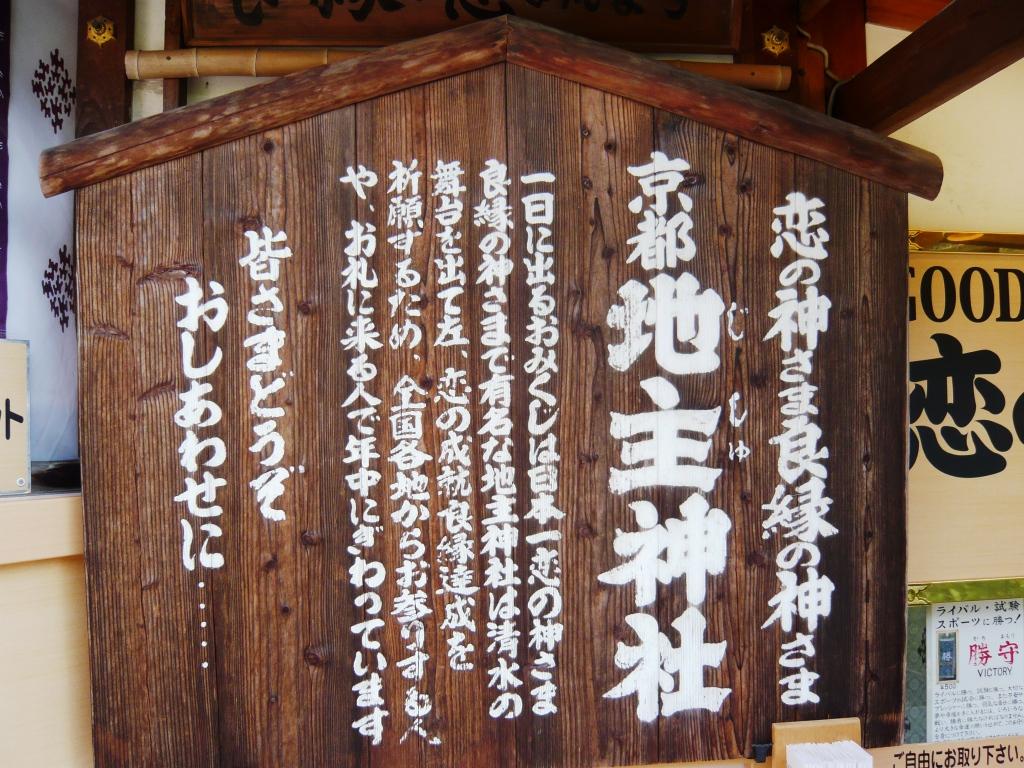 恋の神さま良縁の神さま
京都地主神社
じしゅ
一日に出るおみくじは日本一恋の神さま
良縁の神さまで有名な地主神社は清水の
舞台を出て左、恋の成就良縁達成を
祈願するため、全国各地からお参りする人々
や、お札に来る人で年中にぎわっています
皆さまどうぞ
おしあわせに……
GOOD
恋
ライバル・試験
スポーツに勝つ!
勝守
VICTORY
¥500
ご自由にお取り下さい。
ト